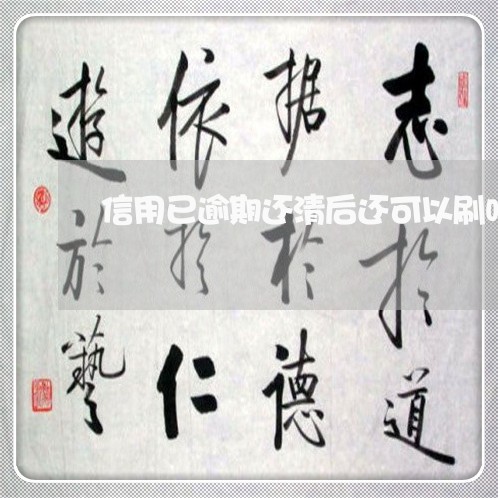 志於道
据於德
依於仁
遊於藝
信用已逾期还清后还可以刷